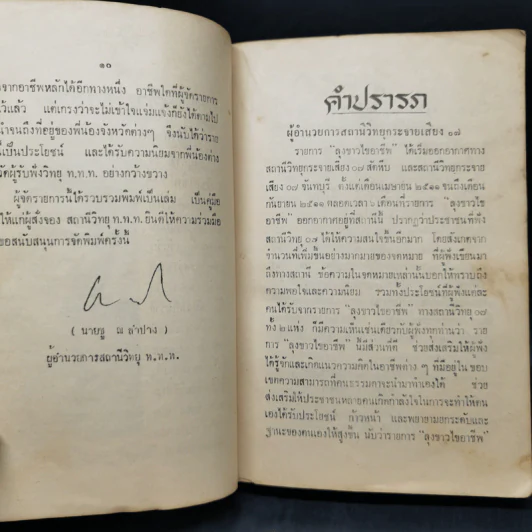 ๑๐
จากอาชีพหลักได้อีกทางหนึ่ง อาชีพใดที่ผู้จัดรายการ
ว้แล้ว แต่เกรงว่าจะไม่เข้าใจแจ่มแจ้งก็ยังได้ตามไป
นำจนถึงที่อยู่ของพี่น้องจังหวัดต่างๆ ซึ่งนับได้ว่าราย
นี้เป็นประโยชน์ และได้รับความนิยมจากพี่น้องต่าง
จัดผู้รับฟังวิทยุ ท.ท.ท. อย่างกว้างขวาง
ผู้จัดรายการนี้ได้รวบรวมพิมพ์เป็นเล่ม เป็นคู่มือ
ให้แก่ผู้สั่งจอง สถานีวิทยุ ท.ท.ท. ยินดีให้ความร่วมมือ
ขอสนับสนุนการจัดพิมพ์ครั้งนี้
( นายชู ณ ลำปาง )
ผู้อำนวยการสถานีวิทยุ ท.ท.ท.
คำปรารภ
ผู้อำนวยการสถานีวิทยุกระจายเสียง ๐๗
รายการ “ลุงขาวไขอาชีพ” ได้เริ่มออกอากาศทาง
สถานีวิทยุกระจายเสียง ๐๗ สัตหีบ และสถานีวิทยุกระจาย
เสียง ๐๗ จันทบุรี ตั้งแต่เดือนเมษายน ๒๕๑๑ จนถึงเดือน
กันยายน ๒๕๑๑ ตลอดเวลา ๖ เดือนที่รายการ “ลุงขาวไข
อาชีพ” ออกอากาศอยู่ที่สถานีนี้ ปรากฏว่าประชาชนที่ฟัง
สถานีวิทยุ ๐๗ ได้ให้ความสนใจขึ้นอีกมาก โดยสังเกตจาก
จำนวนที่เพิ่มขึ้นอย่างมากมายของจดหมาย ที่ผู้ฟังเขียนมา
ถึงทางสถานี ข้อความในจดหมายเหล่านั้นบอกให้ทราบถึง
ความพอใจและความนิยม รวมทั้งประโยชน์ที่ผู้ฟังแต่ละ
คนได้รับจากรายการ “ลุงขาวไขอาชีพ” ทางสถานีวิทยุ ๐๗
ทั้ง ๒ แห่ง ก็มีความเห็นเช่นเดียวกับผู้ฟังทุกท่านว่า ราย
การ “ลุงขาวไขอาชีพ” นี้มีส่วนที่ดี ช่วยส่งเสริมให้ผู้ฟัง
ได้รู้จักและเกิดแนวความคิดในอาชีพต่าง ๆ ที่มีอยู่ใน ขอบ
เขตความสามารถที่คนธรรมดาจะนำมาทำเองได้ ช่วย
ส่งเสริมให้ประชาชนหลายคนเกิดกำลังใจในการจะทำให้ตน
เองได้รับประโยชน์ ก้าวหน้า และพยายามยกระดับและ
ฐานะของตนเองให้สูงขึ้น นับว่ารายการ “ลุงขาวไขอาชีพ”